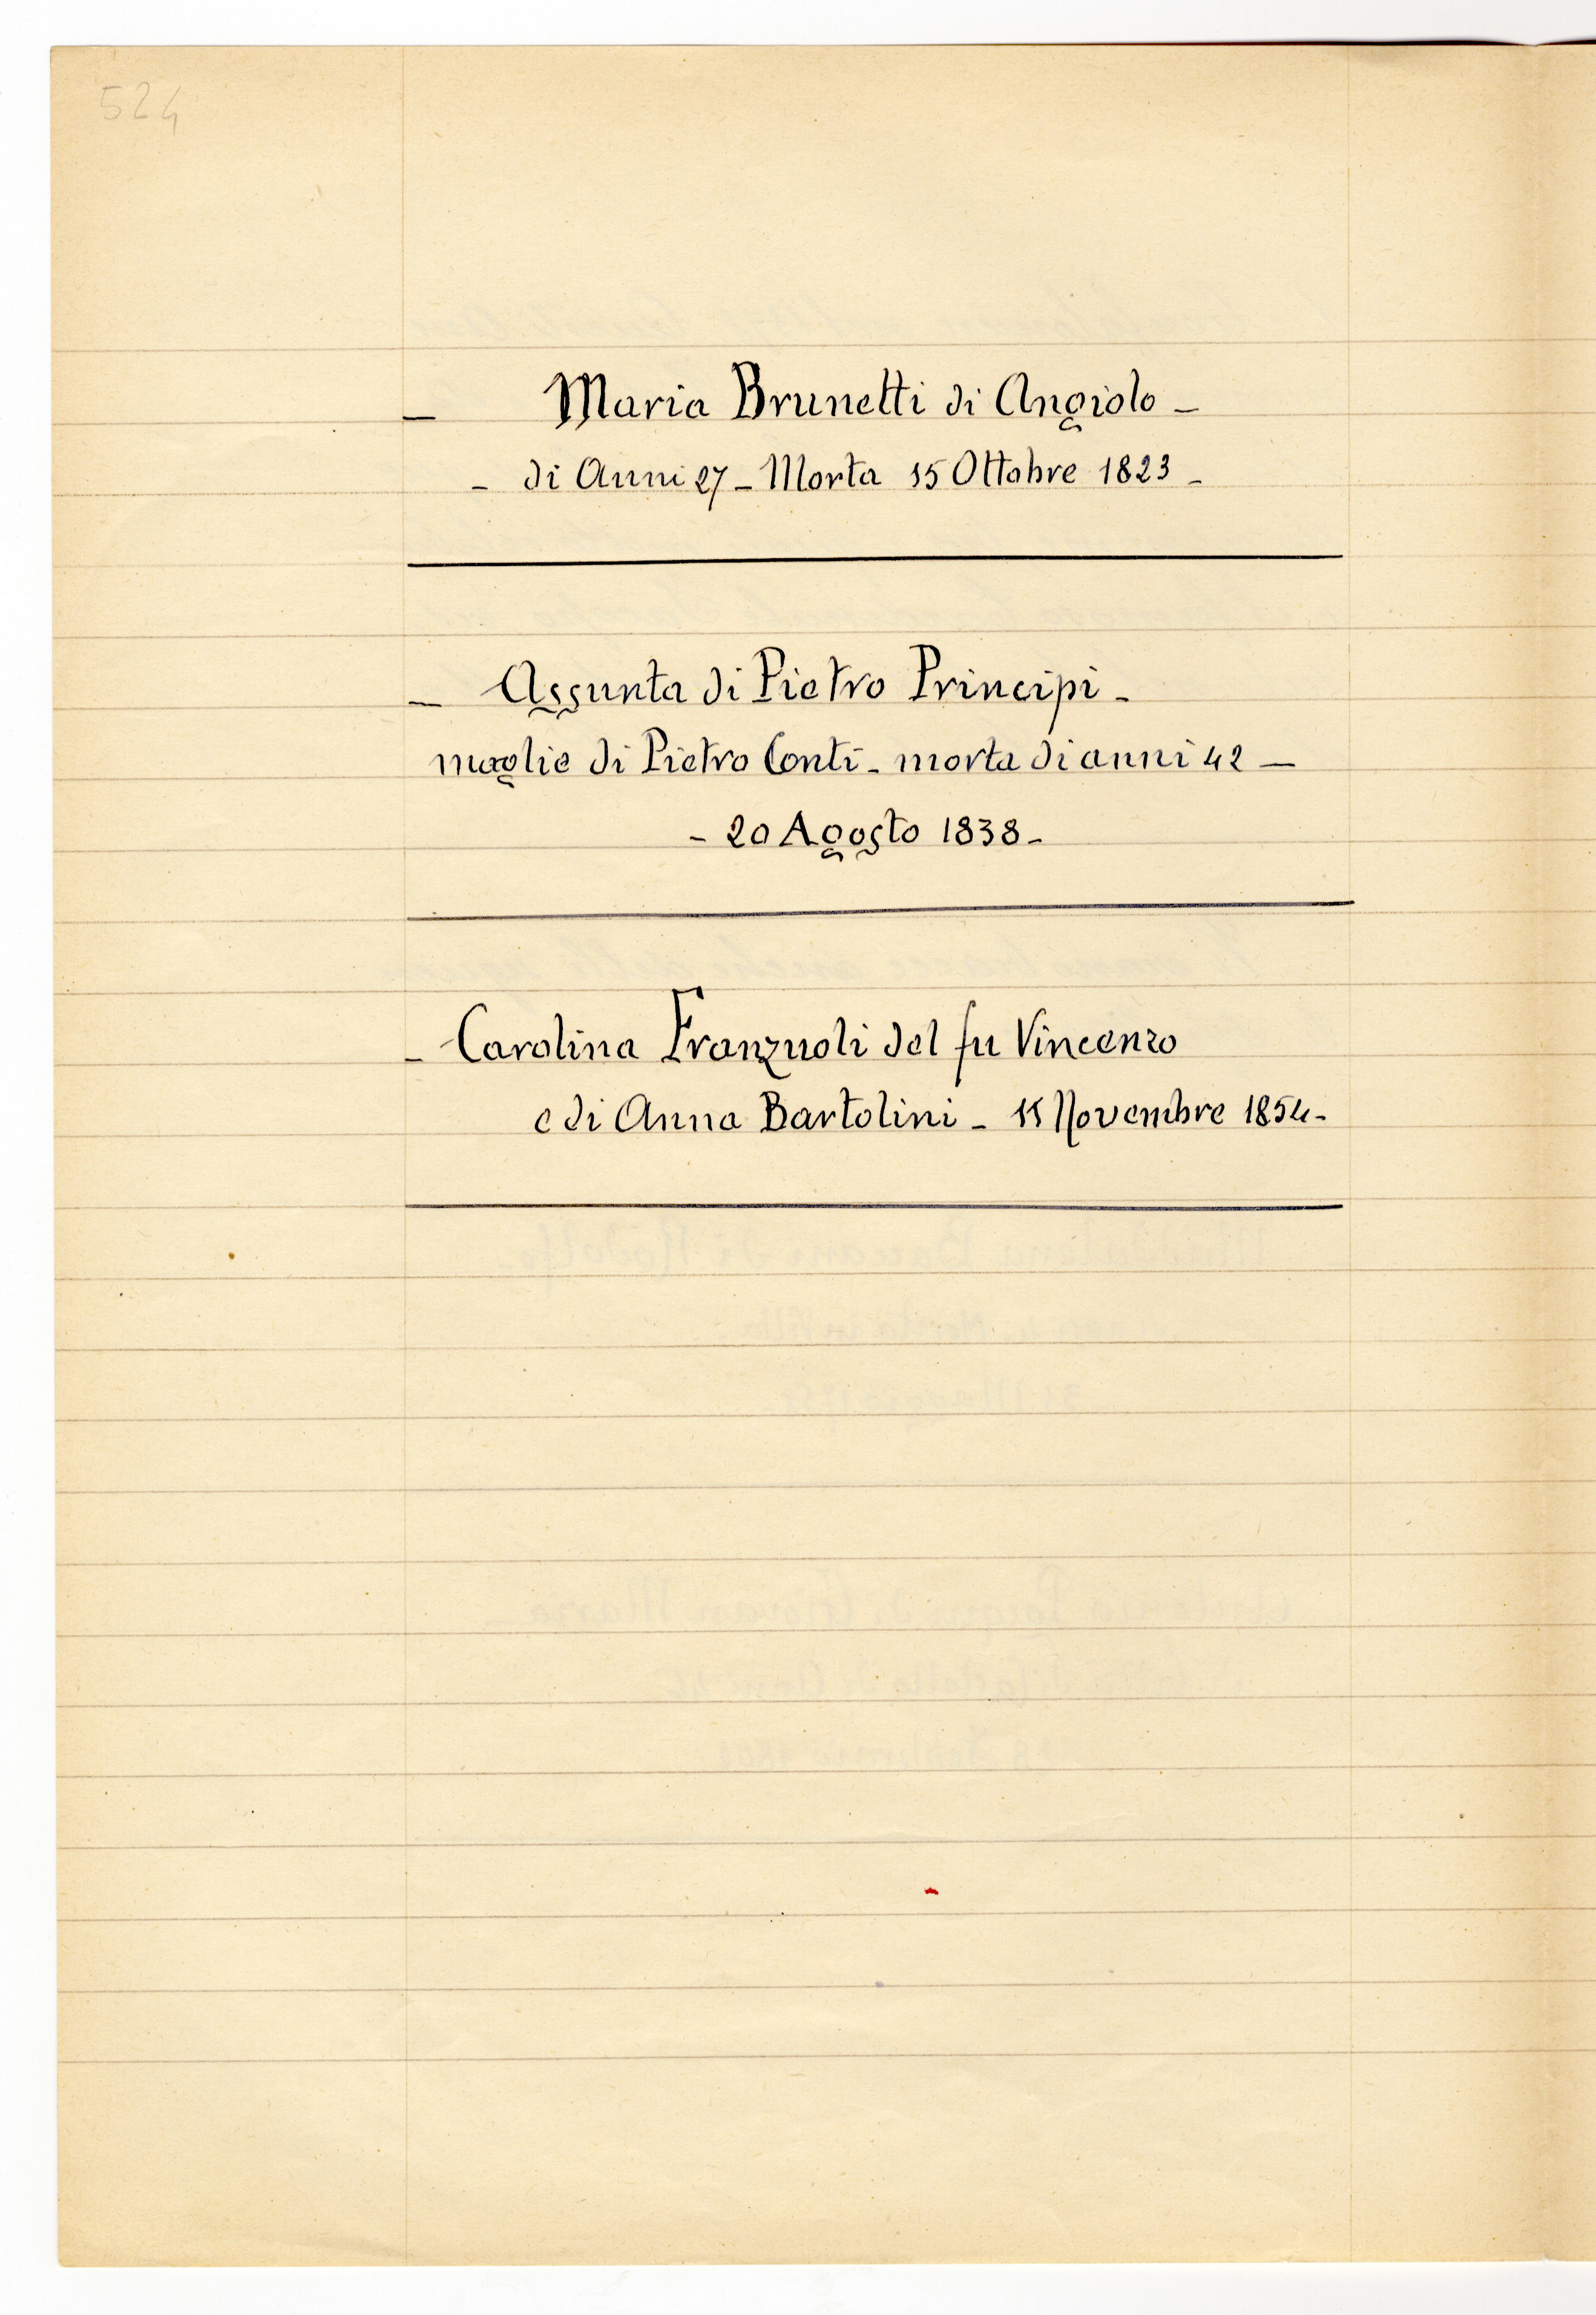 524
_ Maria Brunetti di Angiolo _
_ di Anni 27 _ Morta 15 Ottobre 1823 _
_ Assunta di Pietro Principi _
moglie di Pietro Conti _ morta di anni 42 _
- 20 Agosto 1838 _
_ Carolina Franzuoli del fu Vincenzo
e di Anna Bartolini _ Novembre 1854 _